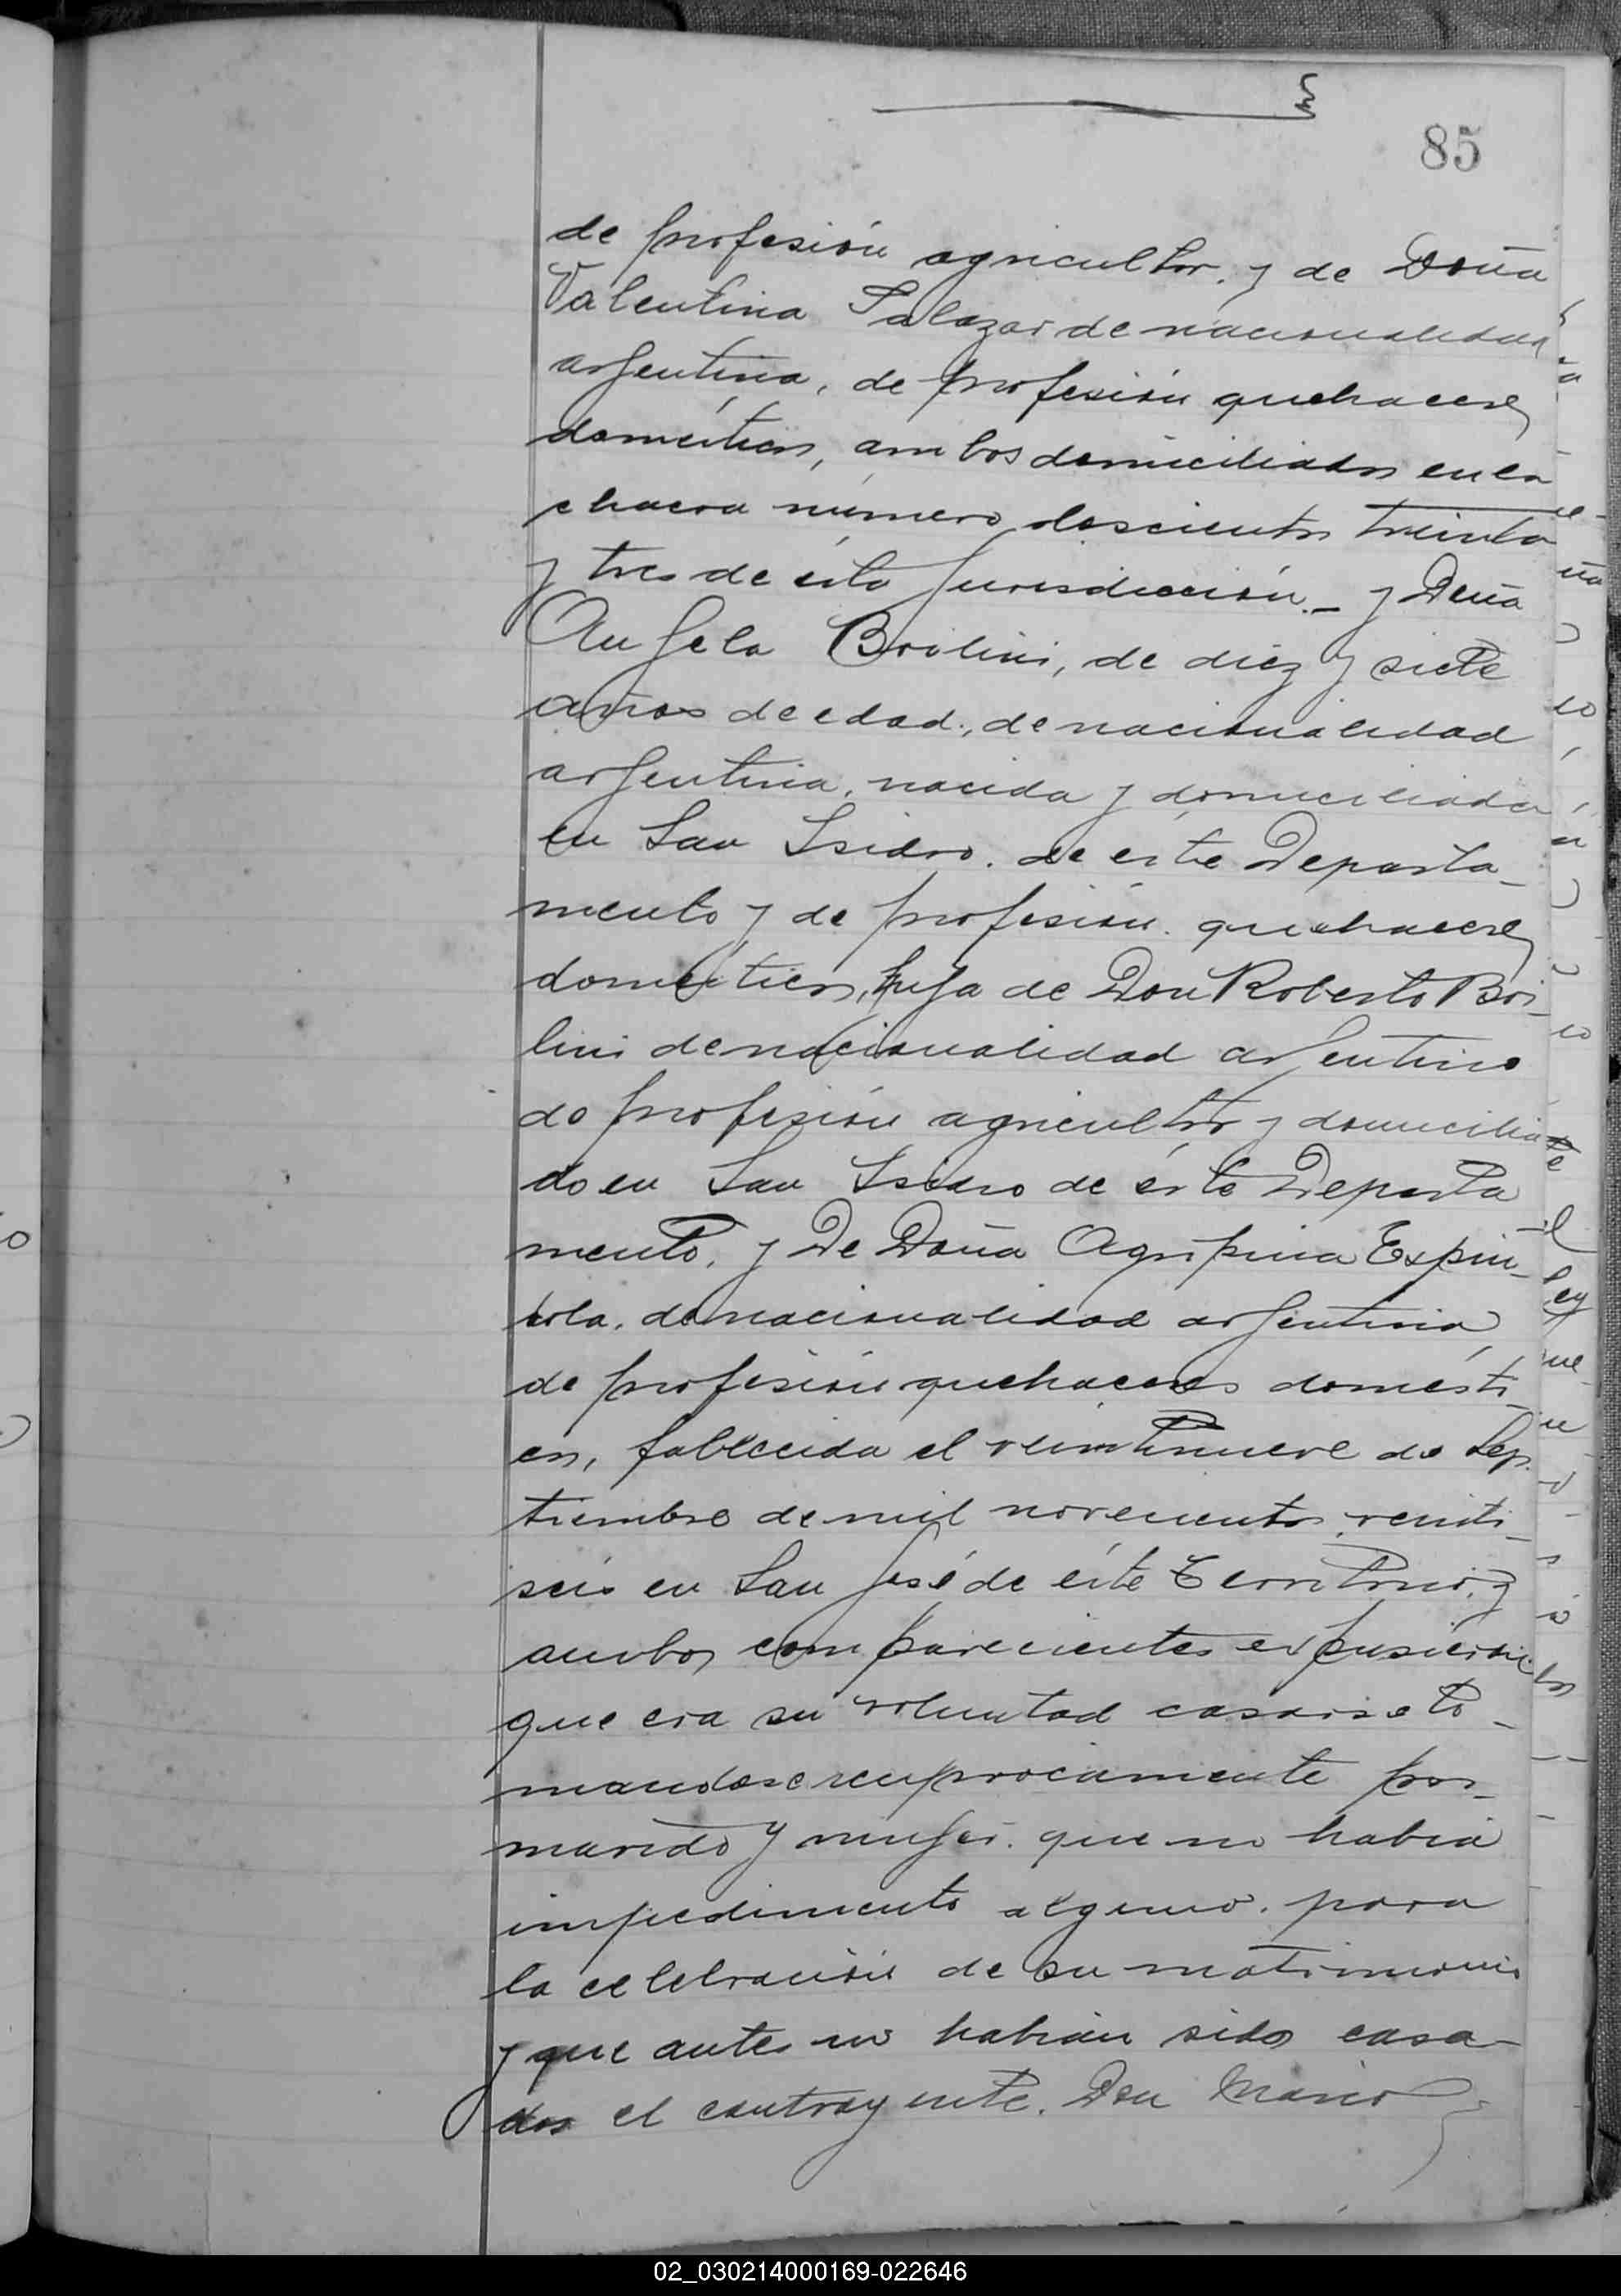 85
de profesión agricultor, y de Doña
Valentina Salazar de nacionalidad
argentina, de profesión quehaceres
domésticos, ambos domiciliados en la
chacra número doscientos treinta
y tres de ésta jurisdicción.- y Doña
Angela Briolini, de diez y siete
años de edad, de nacionalidad
argentina, nacida y domiciliada
en San Isidro, de éste Departa-
mento y de profesión quehaceres
domésticos, hija de Don Roberto Brio-
lini de nacionalidad argentino
de profesión agricultor y domicilia
do en San Isidro de éste Departa
mento, y De Doña Agripina Espín-
dola, de nacionalidad argentina,
de profesión quehaceres domésti
cos, fallecida el veintinueve de Sep-
tiembre de mil novecientos veinti-
seis en San José de éste Territorio, y
ambos comparecientes expusieron
que era su voluntad casarse to-
mandose reciprocamente por
marido y mujer, que no había
impedimento alguno para
la celebración de su matrimonio
y que antes no habían sido casa-
dos el contrayente, Don Mario
02_030214000169-022646